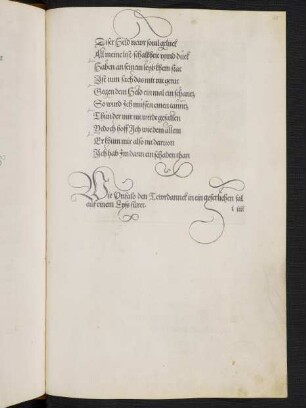 Diser Held newr souil geluck
All meine list schalckheit vnnd duck
Haben an seinem leyb khein stat
Ist nun sach das mir nit gerat
Gegen dem Held ein mal ein schantz
So wurd Ich müssen einen tanntz
Thun der mir nie wirdt gefallen
Yedoch hoff Ich wie dem allem
Er khum mir also nit daruon
Ich hab Im dann ein schaden than
Wie Vnfalo den Tewrdannck in ein geferlichen fal
auf einem Eyß füret
i iiii